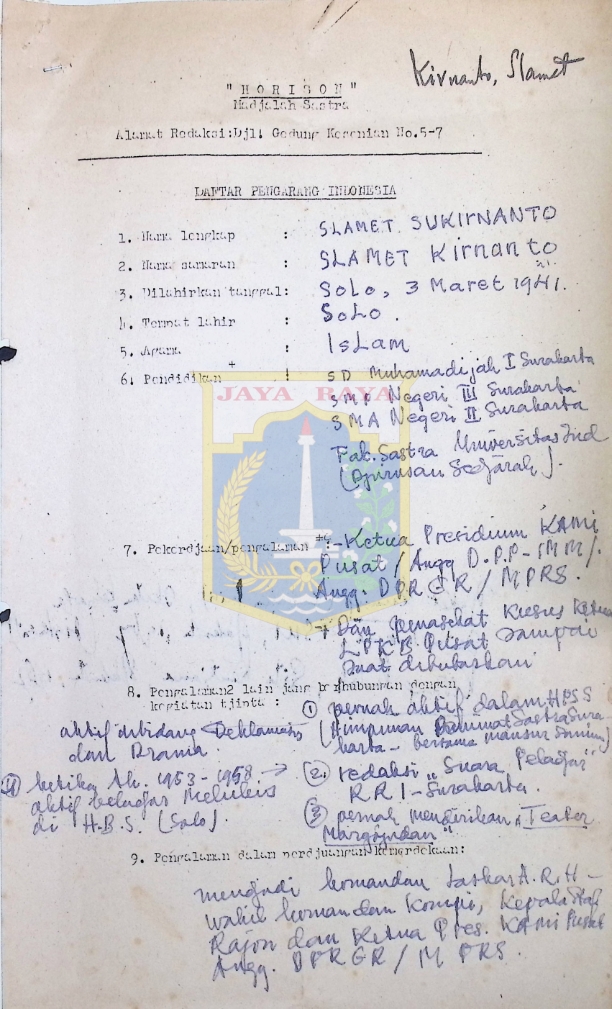 Kirnanto, Slamet
" H O R I S O N "
Madjalah Sastra
Alamat Redaksi:Djl: Gedung Kesenian No.5-7
DAFTAR PENGARANG INDONESIA
1. Nama lengkap : SLAMET SUKIRNANTO
2. Nama samaran : SLAMET Kirnanto
3. Dilahirkan tanggal: SoLo, 3 Maret 1941.
4. Tempat lahir : SoLo.
5. Agama : IsLam
6. Pendidikan + : SD Muhamadijah I Surakarta
SMP Negeri III Surakarta
SMA Negeri II Surakarta
JAYA RAYA
Fak. Sastra Universitas Ind
(Djurusan Sedjarah).
7. Pekerdjaan/pengalaman ++:-Ketua Presidium KAMI
Pusat / Angg D.P.P-IMM/.
Angg. DPRGR / MPRS.
Dan Penasehat
LPKB Pusat Sampai
Saat dibubarkan
8. Pengalaman2 lain jang berhubungan dengan
kegiatan tjinta :
① pernah aktif dalam HPSS
(Himpunan Peminat Sastra Sura
karta -
aktif dibidang Deklamasi
dan Drama.
④ ketika th. 1953-1958 →
aktif beladjar Melukis
di H.B.S. (Solo).
②. redaksi „Suara Peladjar"
RRI-Surakarta.
③ pernah mendirikan „Teater
Margojudan"
9. Pengalaman dalam perdjuangan kemerdekaan:
mendjadi komandan Laskar A.R.H -
wakil komandan Kompi, Kepala Staf
Rajon dan Ketua Pres. KAMI Pusat
Angg. DPRGR / MPRS.